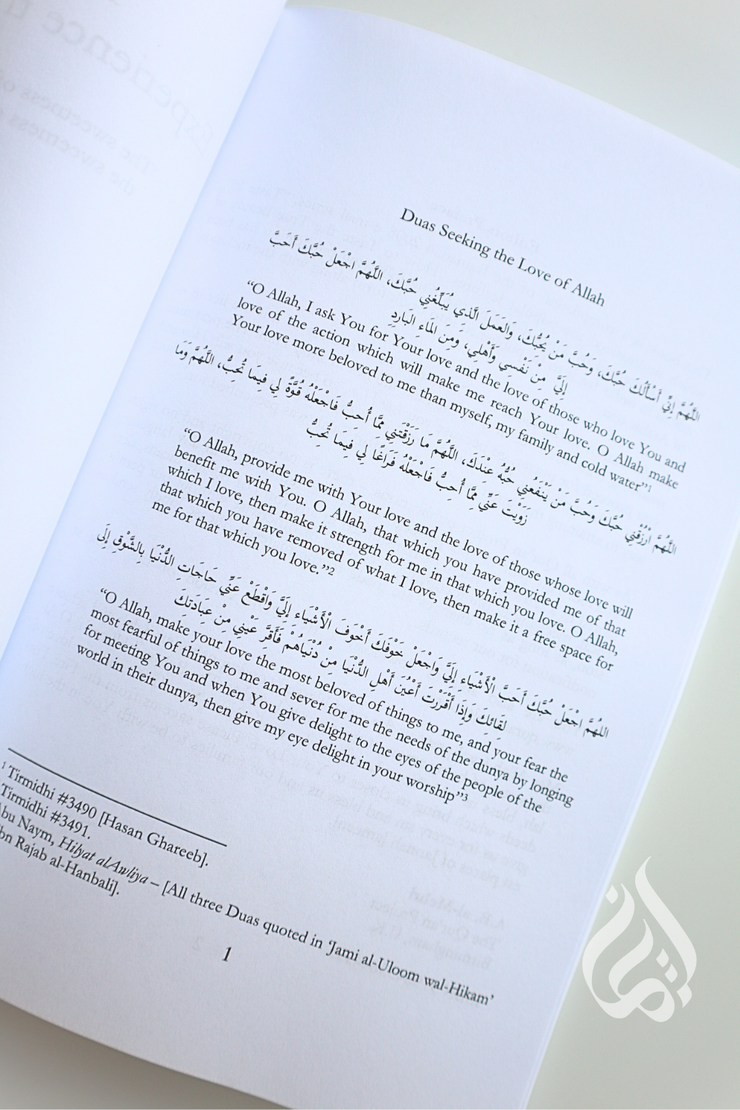 Duas Seeking the Love of Allah
اللَّهُمَّ إِنِّي أَسْأَلُكَ حُبَّكَ، وَحُبَّ مَنْ يُحِبُّكَ، وَالعَمَلَ الَّذِي يُبَلِّغُنِي حُبَّكَ، اللَّهُمَّ اجْعَلْ حُبَّكَ أَحَبَّ
إِلَيَّ مِنْ نَفْسِي وَأَهْلِي، وَمِنَ المَاءِ البَارِدِ
“O Allah, I ask You for Your love and the love of those who love You and
love of the action which will make me reach Your love. O Allah make
Your love more beloved to me than myself, my family and cold water”1
اللَّهُمَّ ارْزُقْنِي حُبَّكَ وَحُبَّ مَنْ يَنْفَعُنِي حُبُّهُ عِنْدَكَ، اللَّهُمَّ مَا رَزَقْتَنِي مِمَّا أُحِبُّ فَاجْعَلْهُ قُوَّةً لِي فِيمَا تُحِبُّ، اللَّهُمَّ وَمَا
زَوَيْتَ عَنِّي مِمَّا أُحِبُّ فَاجْعَلْهُ فَرَاغًا لِي فِيمَا تُحِبُّ
“O Allah, provide me with Your love and the love of those whose love will
benefit me with You. O Allah, that which you have provided me of that
which I love, then make it strength for me in that which you love. O Allah,
that which you have removed of what I love, then make it a free space for
me for that which you love.”2
اللهُم اجْعَلْ حُبَّكَ أَحَبَّ الْأَشْيَاءِ إِلَيَّ وَاجْعَلْ خَوْفَكَ أَخْوَفَ الْأَشْيَاءِ إِلَيَّ وَاقْطَعْ عَنِّي حَاجَاتِ الدُّنْيَا بِالشَّوْقِ إِلَى
لِقَائِكَ وَإِذَا أَقْرَرْتَ أَعْيُنَ أَهْلِ الدُّنْيَا مِنْ دُنْيَاهُمْ فَأَقْرِرْ عَيْنِي مِنْ عِبَادَتِكَ
“O Allah, make your love the most beloved of things to me, and your fear the
most fearful of things to me and sever for me the needs of the dunya by longing
for meeting You and when You give delight to the eyes of the people of the
world in their dunya, then give my eye delight in your worship”3
1 Tirmidhi #3490 [Hasan Ghareeb].
Tirmidhi #3491.
Abu Naym, Hilyat alAwliya – [All three Duas quoted in ‘Jami al-Uloom wal-Hikam’
Ibn Rajab al-Hanbali].
1